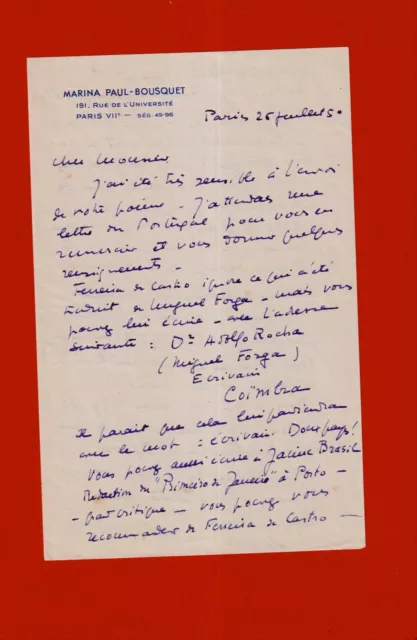 MARINA PAUL-BOUSQUET
191. RUE DE L'UNIVERSITÉ
PARIS VIIᵉ - SÉG. 49-96
Paris 26 juillet 50
Cher Monsieur
J'ai été très sensible à l'envoi
de votre poème - J'attendais une
lettre du Portugal pour vous en
remercier et vous donner quelques
renseignements -
Ferreira de Castro ignore ce qui a été
traduit de Miguel Forga - mais vous
pouvez lui écrire - avec l'adresse
suivante : Dr Adolfo Rocha
(Miguel Forga)
Ecrivain
Coïmbra
Il parait que cela lui parviendra
avec le mot : écrivain. Doux pays!
Vous pouvez aussi écrire à Jaime Brasil
Rédaction du "Primeiro de Janeiro" à Porto -
- grand critique - vous pouvez vous
recommander de Ferreira de Castro -